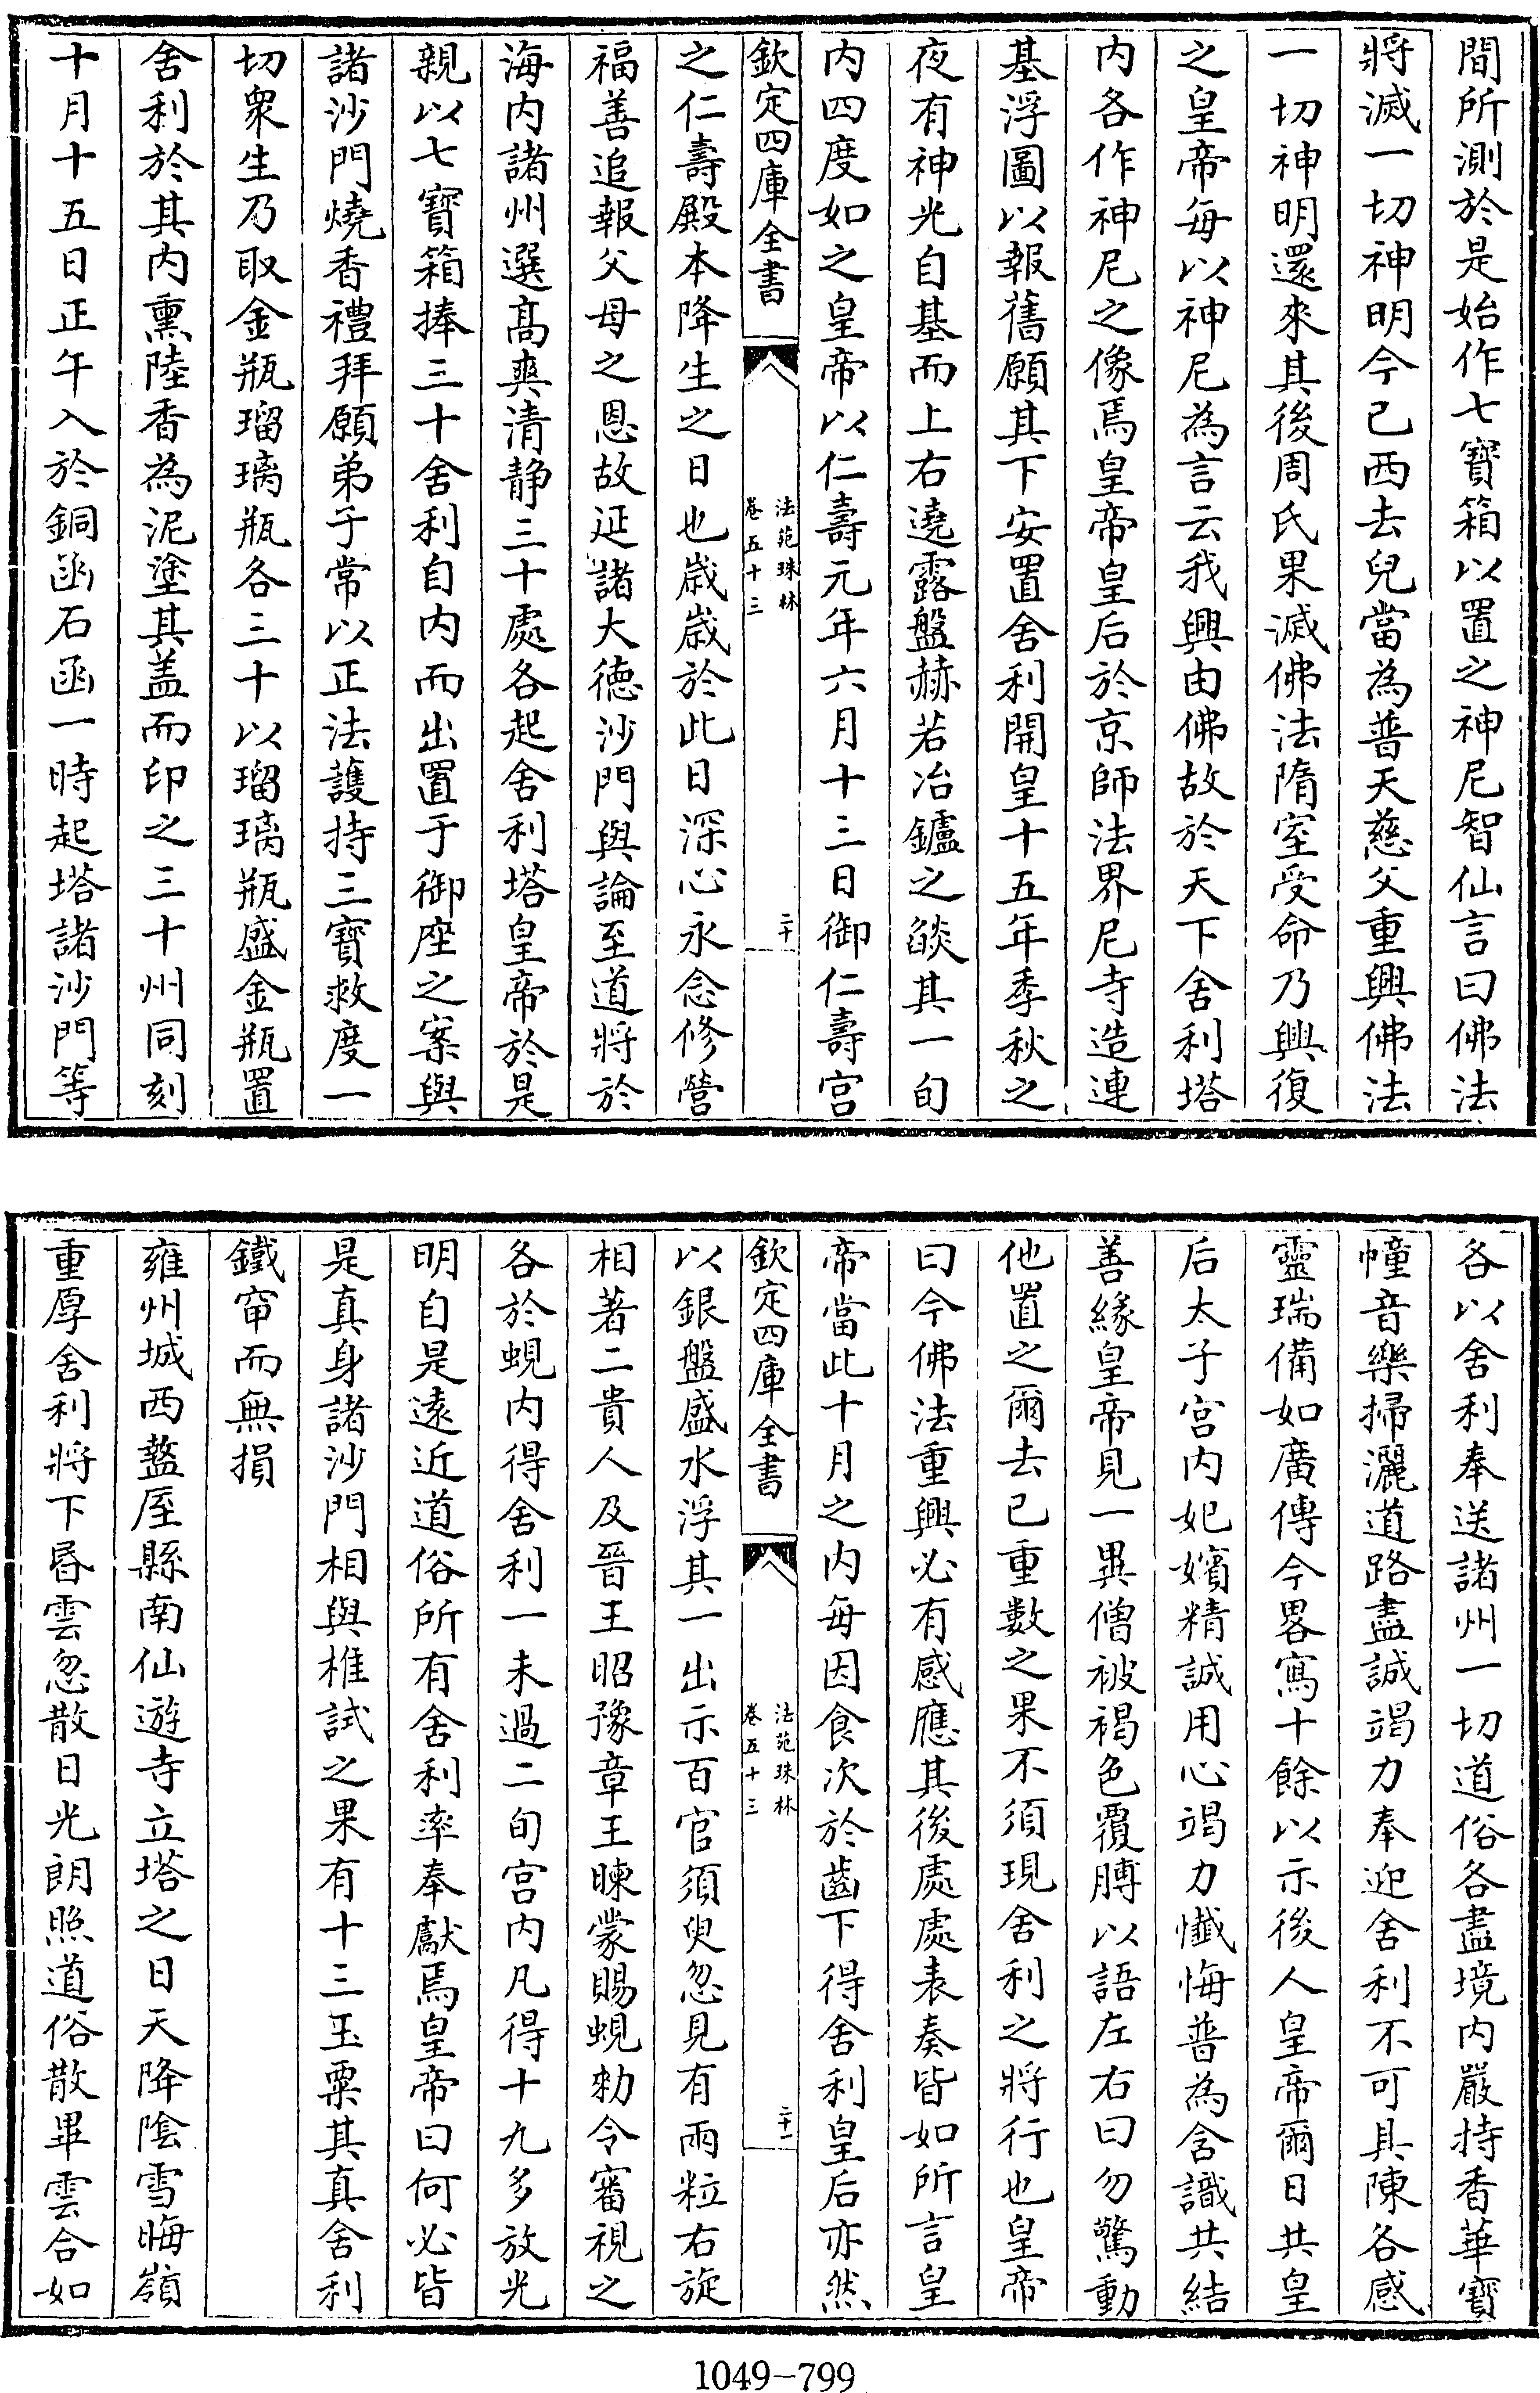 間所測於是始作七寶箱以置之神尼智仙言曰佛法
將滅一切神明今已西去兒當為普天慈父重興佛法
一切神明還來其後周氏果滅佛法隋室受命乃興復
之皇帝每以神尼為言云我興由佛故於天下舍利塔
内各作神尼之像焉皇帝皇后於京師法界尼寺造連
基浮圖以報舊願其下安置舍利開皇十五年季秋之
夜有神光自基而上右遶露盤赫若冶鑪之燄其一旬
内四度如之皇帝以仁壽元年六月十三日御仁壽宫
欽定四庫全書
法苑珠林
卷五十三
二十
之仁壽殿本降生之日也歲歲於此日深心永念修營
福善追報父母之恩故延諸大德沙門與論至道將於
海内諸州選髙爽清静三十處各起舍利塔皇帝於是
親以七寶箱捧三十舍利自内而出置于御座之案與
諸沙門燒香禮拜願弟子常以正法護持三寶救度一
切衆生乃取金瓶瑠璃瓶各三十以瑠璃瓶盛金瓶置
舍利於其内熏陸香為泥塗其盖而印之三十州同刻
十月十五日正午入於銅函石函一時起塔諸沙門等
各以舍利奉送諸州一切道俗各盡境内嚴持香華寶
幢音樂掃灑道路盡誠竭力奉迎舍利不可具陳各感
靈瑞備如廣傳今畧寫十餘以示後人皇帝爾日共皇
后太子宫内妃嬪精誠用心竭力懺悔普為含識共結
善緣皇帝見一異僧被褐色覆膊以語左右曰勿驚動
他置之爾去已重數之果不須現舍利之將行也皇帝
曰今佛法重興必有感應其後處處表奏皆如所言皇
帝當此十月之内每因食次於齒下得舍利皇后亦然
欽定四庫全書
法苑珠林
卷五十三
二十一
以銀盤盛水浮其一出示百官須臾忽見有兩粒右旋
相著二貴人及晉王昭豫章王暕蒙賜蜆勑令審視之
各於蜆内得舍利一未過二旬宫内凡得十九多放光
明自是遠近道俗所有舍利率奉獻焉皇帝曰何必皆
是真身諸沙門相與椎試之果有十三玉粟其真舍利
鐵窜而無損
雍州城西盩厔縣南仙遊寺立塔之日天降陰雪晦嶺
重厚舍利將下昬雲忽散日光朗照道俗散畢雲合如
1049-799